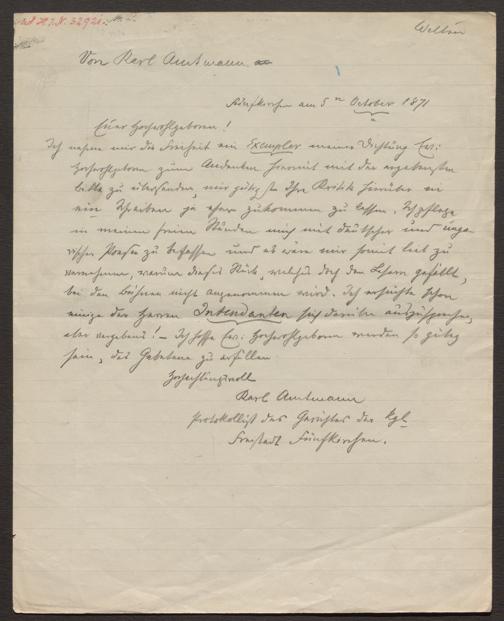 Wellen
Von Karl Amtmann
Fünfkirchen am 5ten October 1871
Euer Hochwohlgeboren!
Ich nehme mir die Freiheit ein Exemplar meiner Dichtung Eur:
Hochwohlgeboren zum Andenken hiermit mit der ergebensten
Bitte zu übersenden, mir gütigst Ihre Kritik hierüber in
ein Schreiben zukommen zu lassen. Ich pflege
in meinen freien Stunden mich mit deutscher und unga-
rischer Poesie zu befassen und es wäre mir somit lieb zu
vernehmen, warum dieses Stück, welches doch den Lesern gefällt,
bei den Bühnen nicht angenommen wird. Ich ersuchte schon
einige der Herren Intendanten sich darüber auszusprechen,
aber vergebens! – Ich hoffe Eur: Hochwohlgeboren werden so gütig
sein, das Gebetene zu erfüllen
Hochachtungsvoll
Karl Amtmann
Protokollist des Gerichtes der kgl.
Freistadt Fünfkirchen.